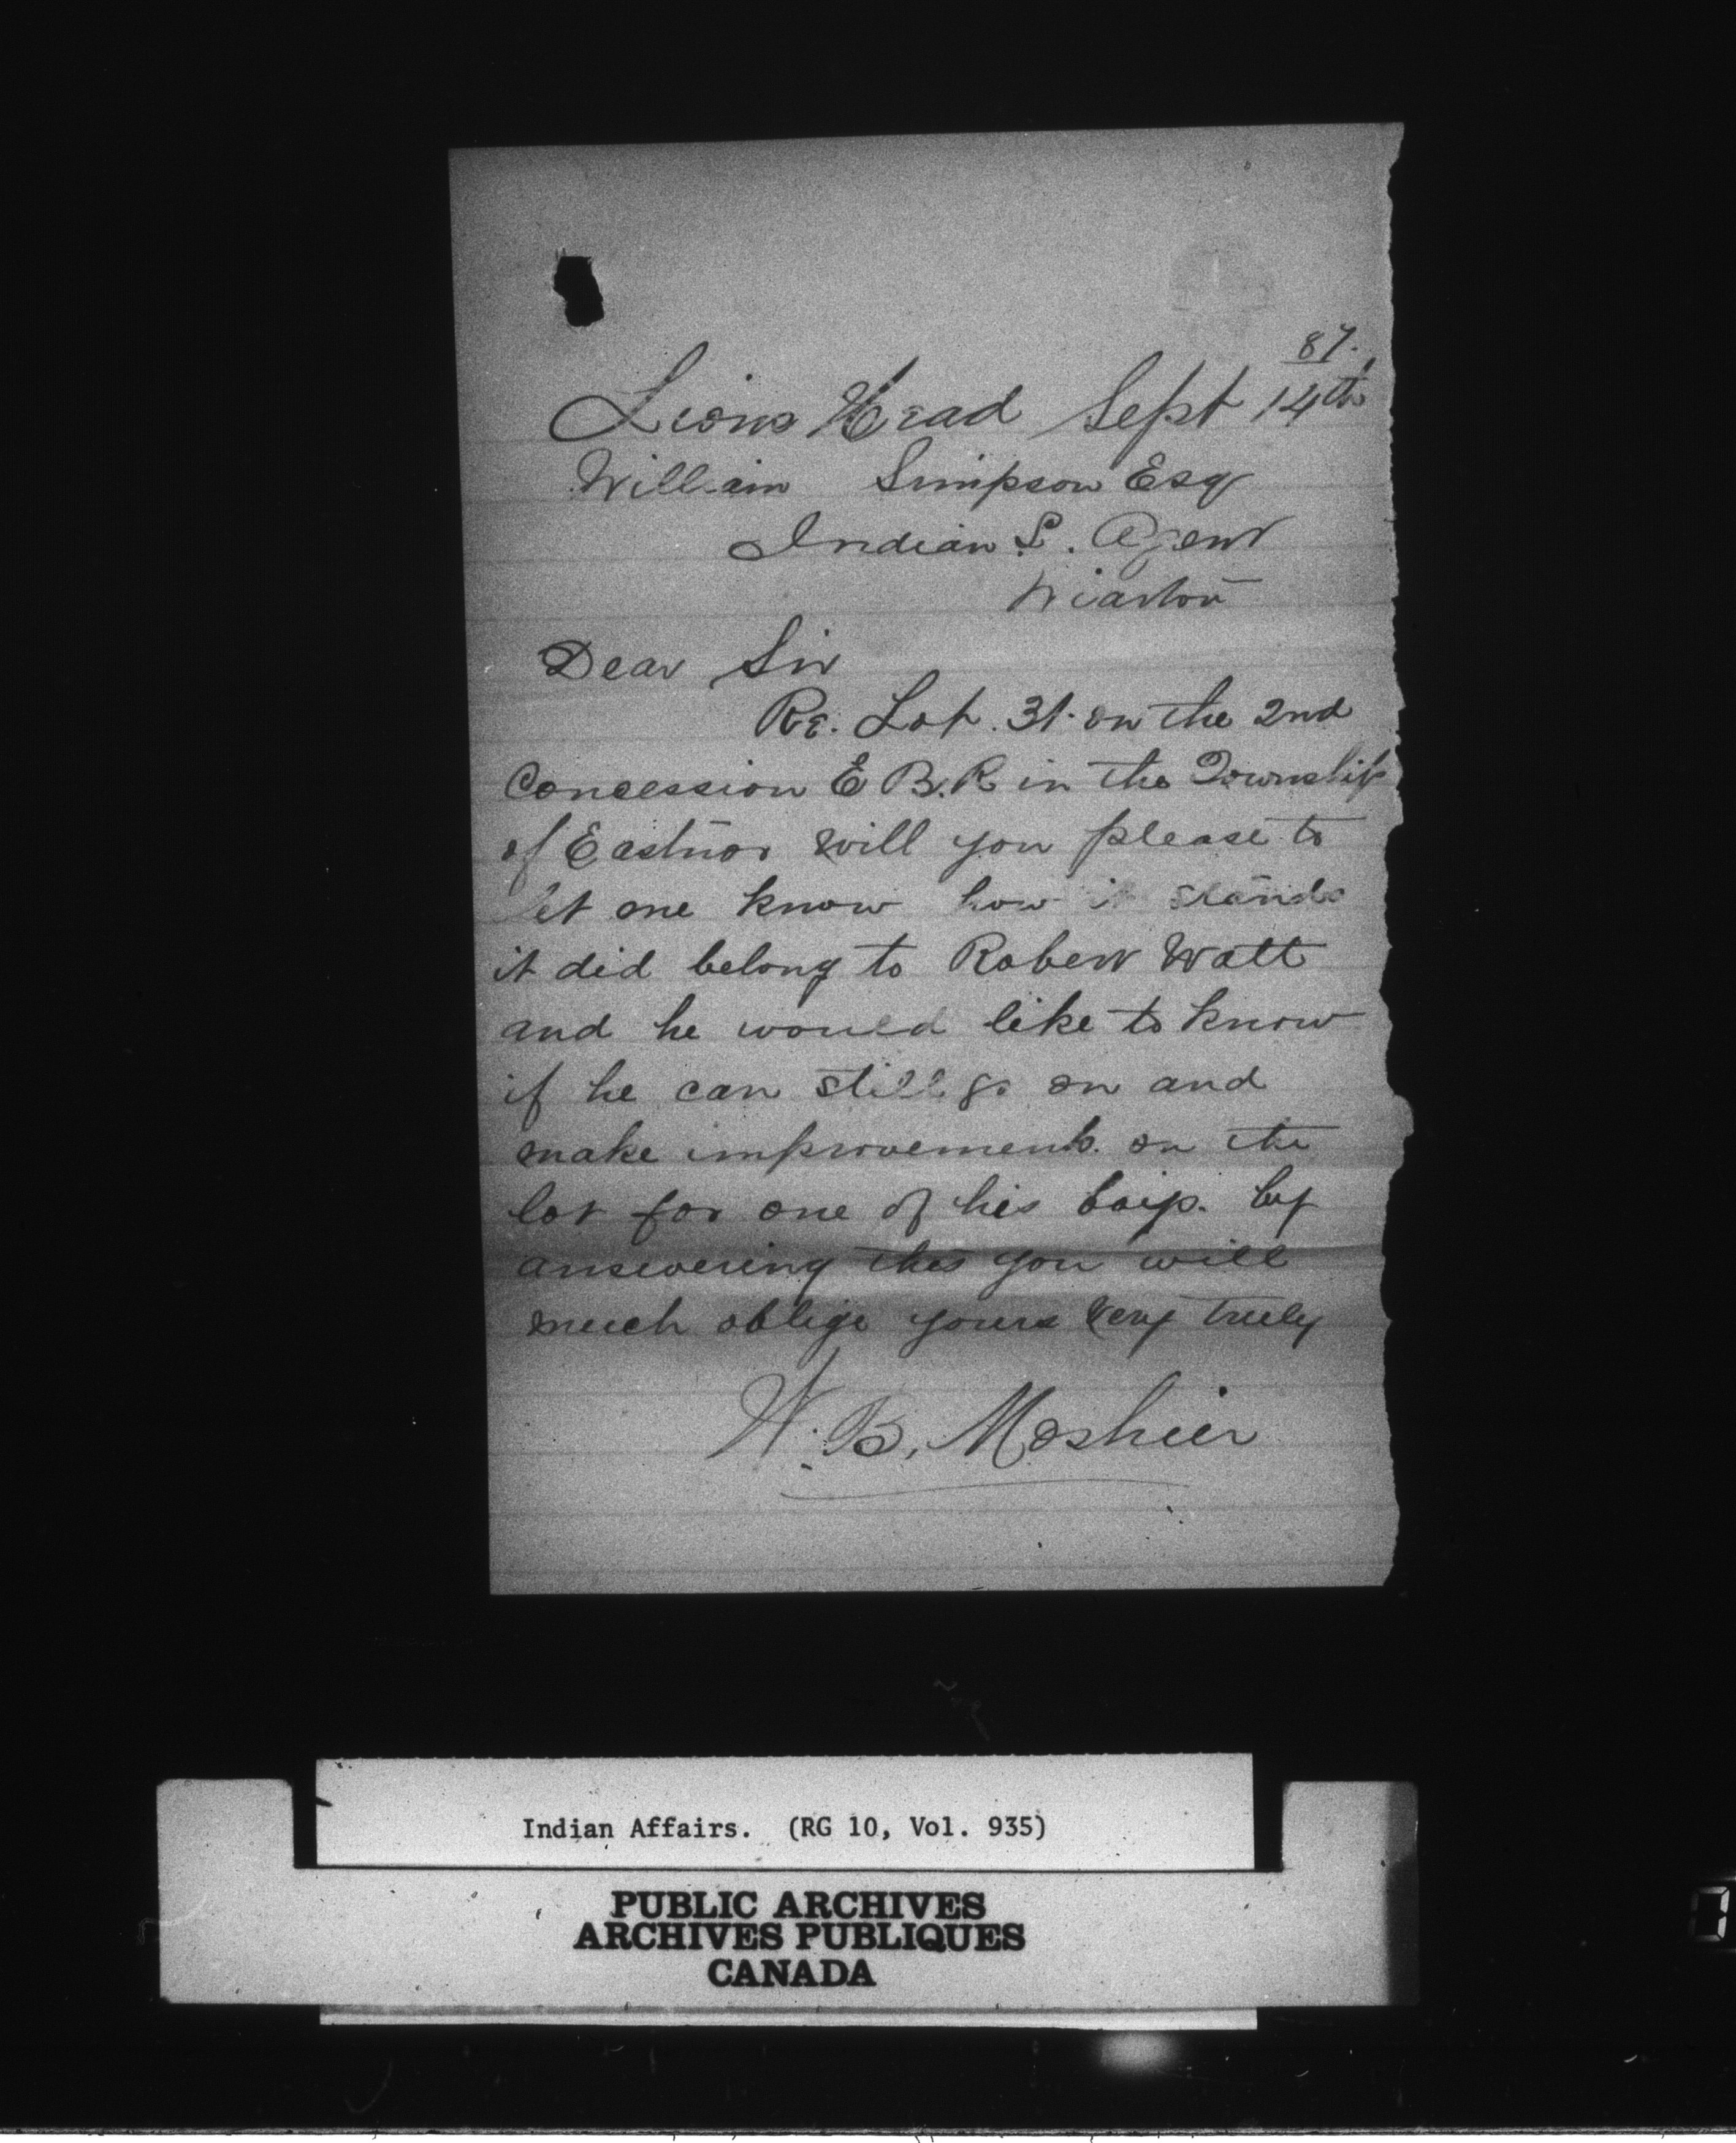 87.
Lions Head Sept 14th
William Simpson Esq
Indian L. Agent
Wiarton
Dear Sir
Re. Lot. 31. on the 2nd
Concession E B. R in the Township
of Eastnor will you please to
let me know how it stands
it did belong to Robert Watt
and he would like to know
if he can still go on and
make improvements. on the
lot for one of his boys. by
answering this you will
much oblige yours very truly
W. B. Moshier
Indian Affairs. (RG 10, Vol. 935)
PUBLIC ARCHIVES
ARCHIVES PUBLIQUES
CANADA